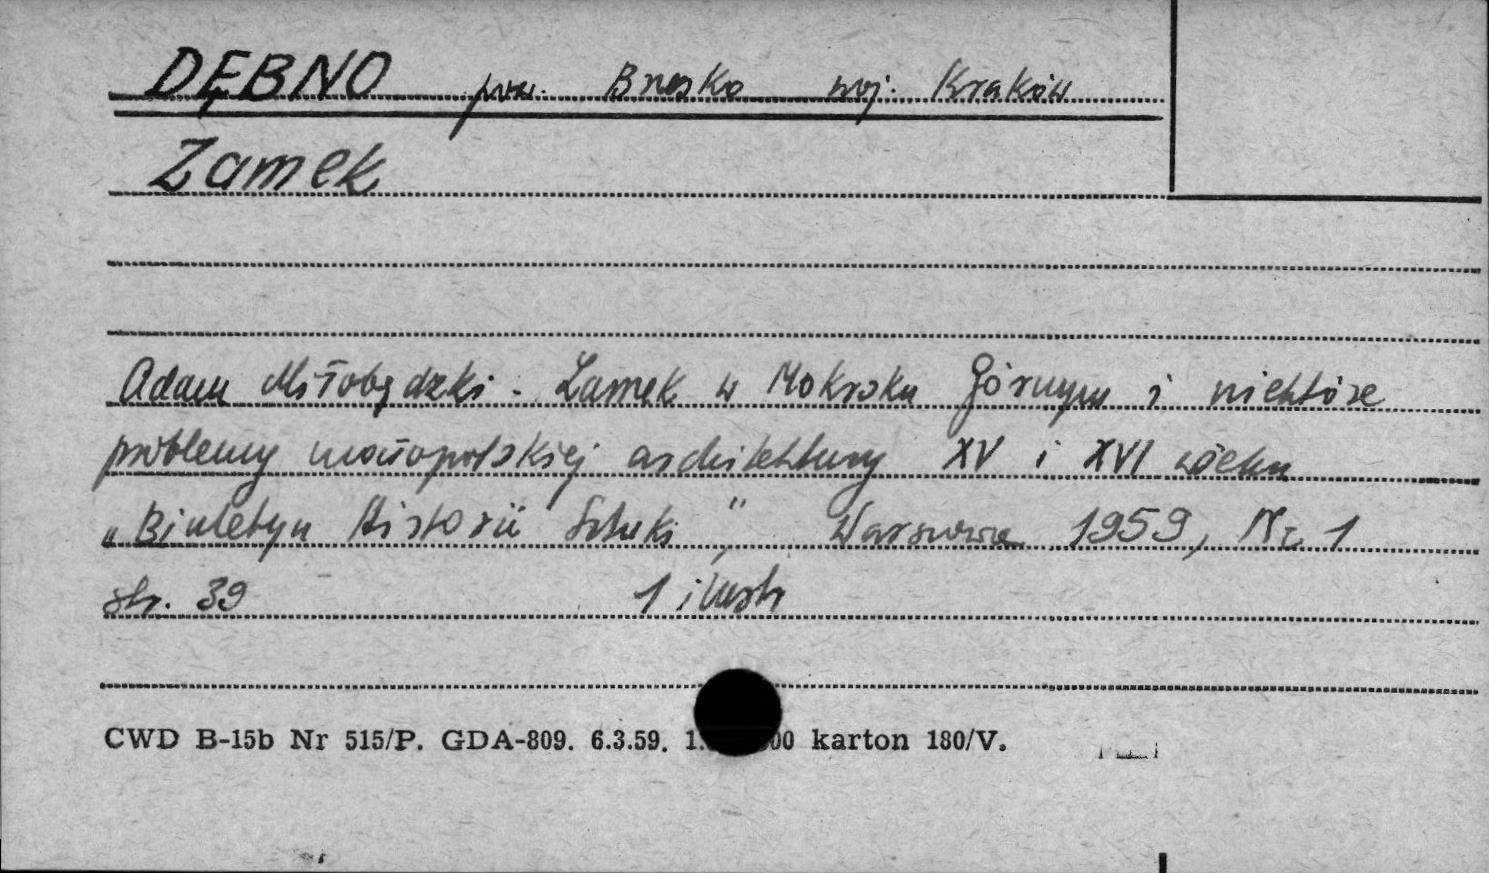 DĘBNO pow. Brzesko woj. Kraków
Zamek
Adam Miłobędzki - Zamek w Mokrsku Górnym i niektóre
problemy małopolskiej architektury XV i XVI wieku
„Biuletyn Historii Sztuki", Warszawa 1959, Nr 1
str. 39 1 ilustr
CWD B-15b Nr 515/P. GDA-809. 6.3.59. karton 180/V.